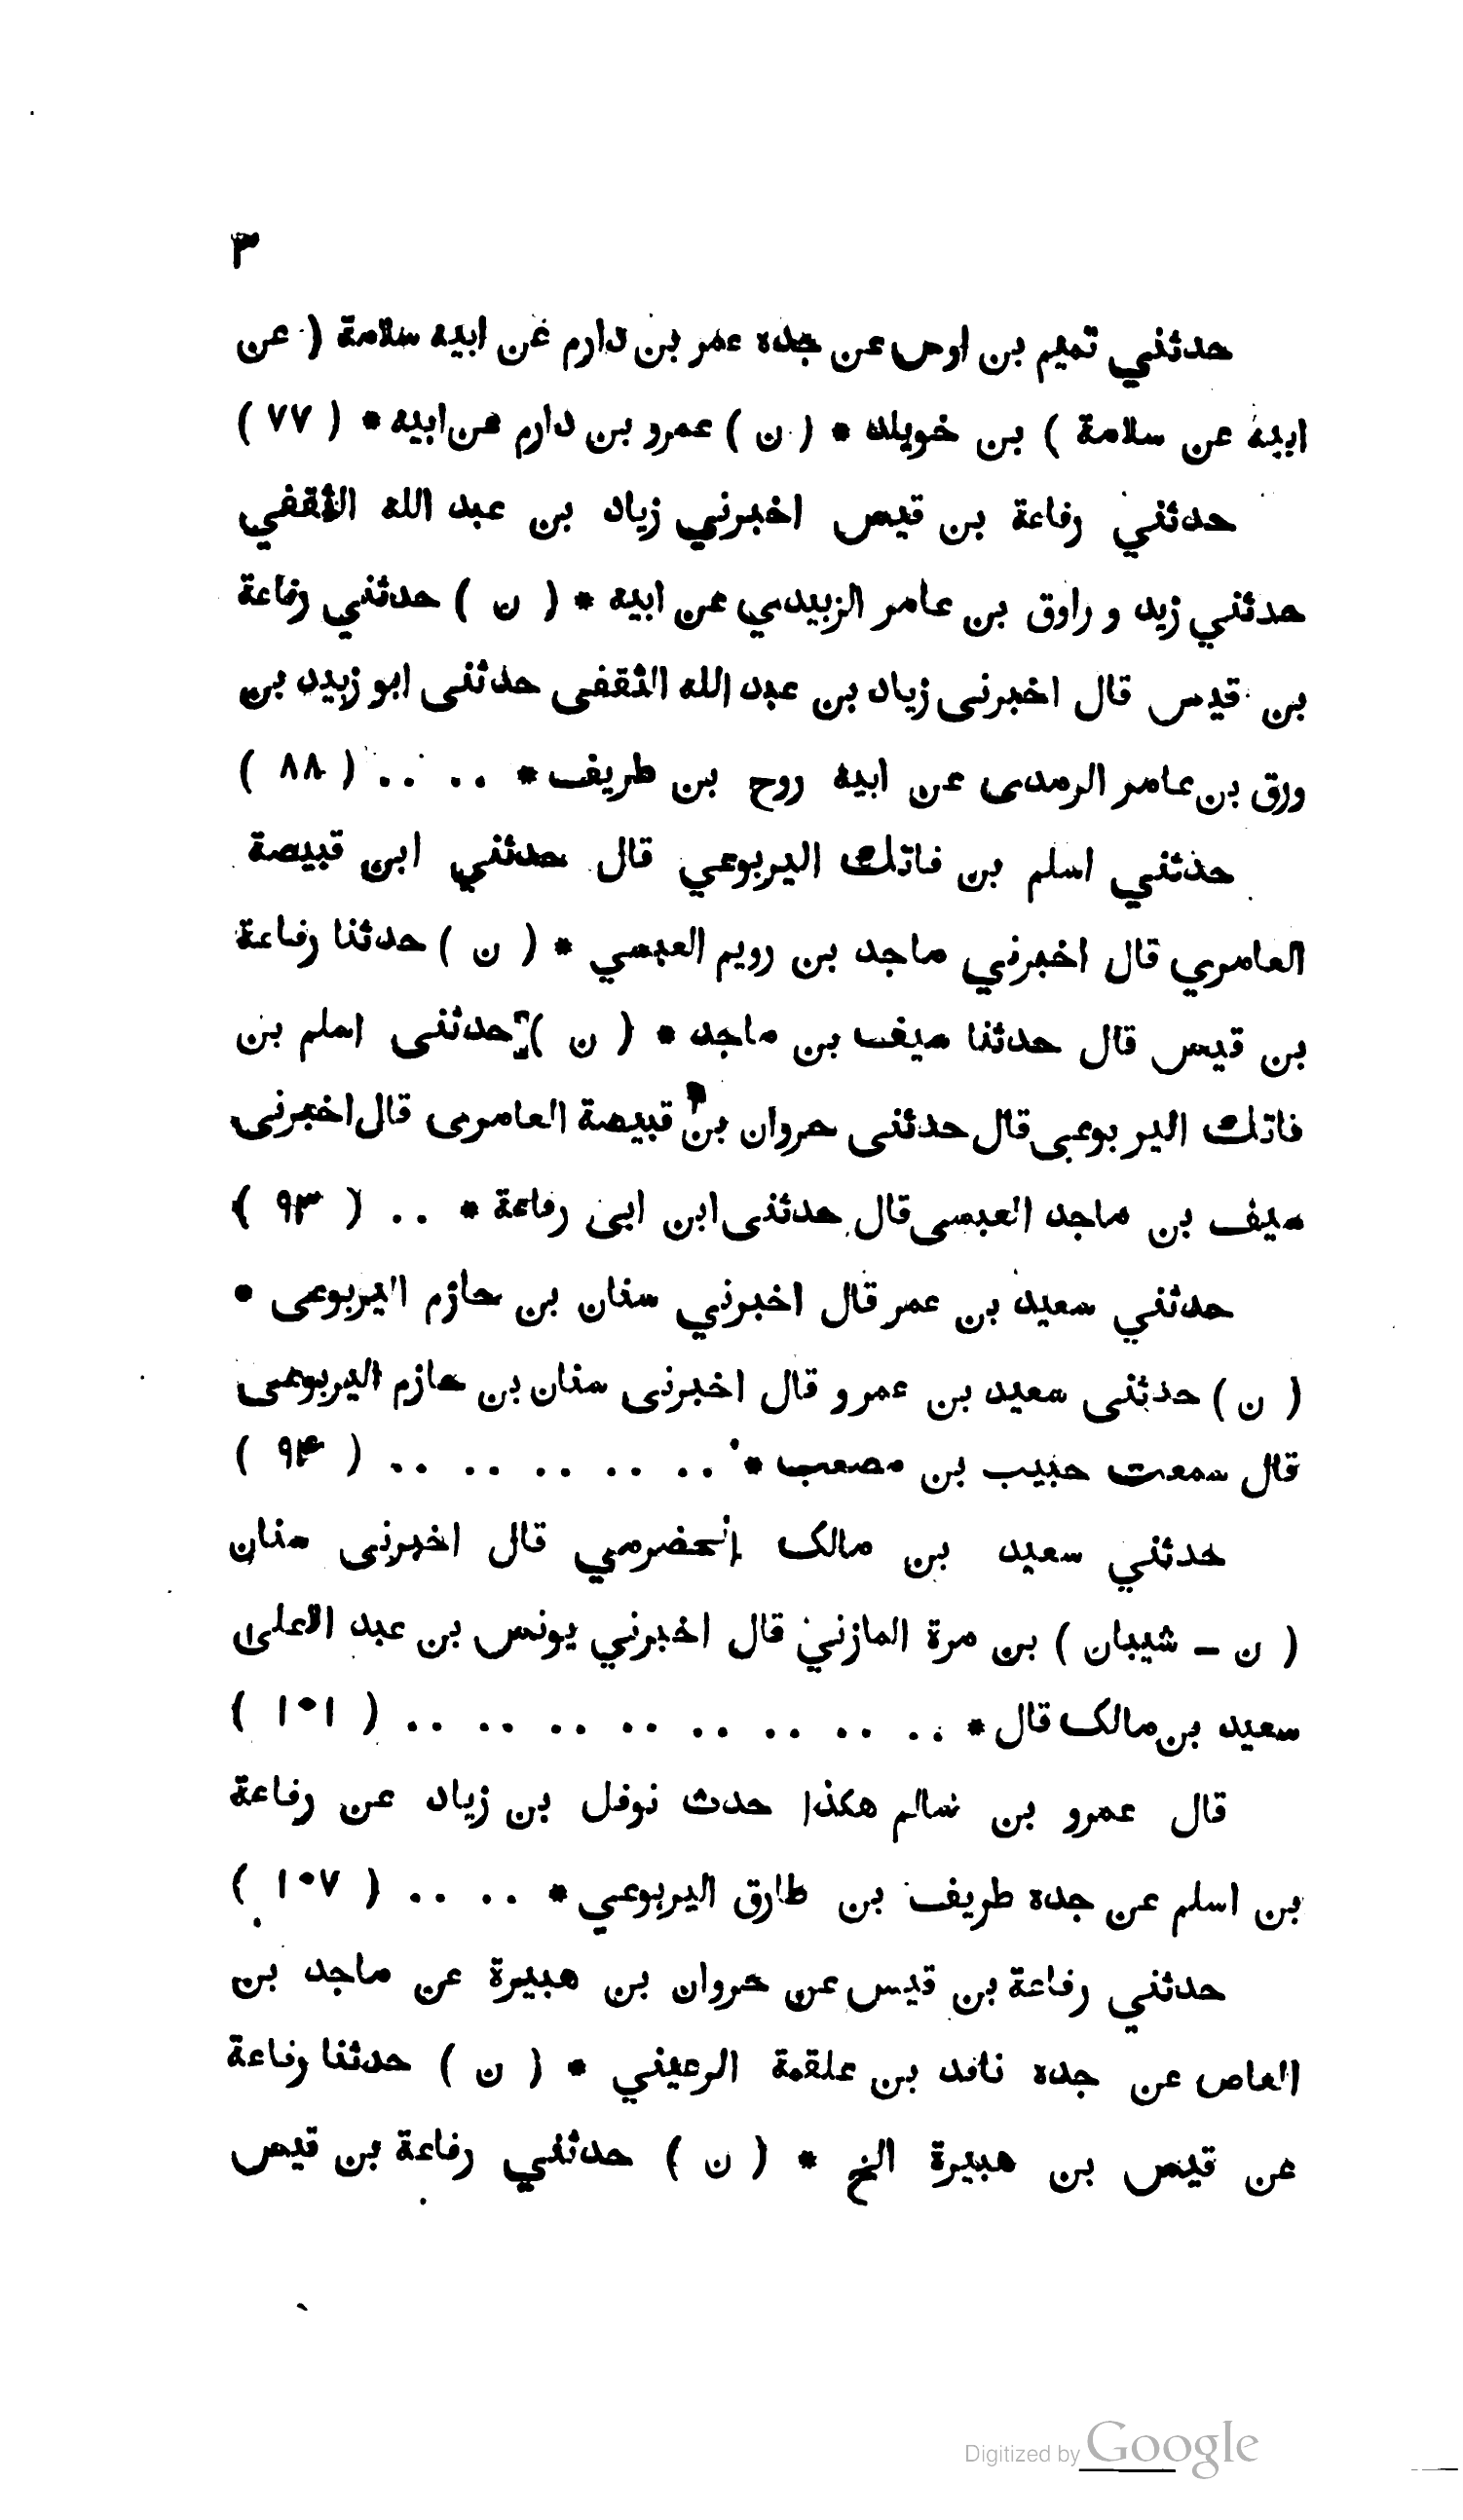 ٣
حدثني تميم بن اوس عن جده عمر بن دارم عن ابيه سلامة ( عن
ابيه عن سلامة ) بن خويلد * ( ن ) عمرو بن دارم عن ابيه * ( ٧٧ )
حدثني رفاعة بن قيس اخبرني زياد بن عبد الله الثقفي
حدثني زيد و راوق بن عامر الزبيدي عن ابيه * ( ن ) حدثني رفاعة
بن قيس قال اخبرنى زياد بن عبد الله الثقفى حدثنى ابو زبيد بن
ورق بن عامر الرمدى عن ابيه روح بن طريف * .. .. ( ٨٨ )
حدثني اسلم بن فاتك اليربوعي قال حدثني ابن قبيصة
العامري قال اخبرني ماجد بن رويم العبسي * ( ن ) حدثنا رفاعة
بن قيس قال حدثنا سيف بن ماجد * ( ن ) حدثنى اسلم بن
فاتك اليربوعى قال حدثنى مروان بن قبيصة العامرى قال اخبرنى
سيف بن ماجد العبسى قال حدثنى ابن ابى رفاعة * .. ( ٩٣ )
حدثني سعيد بن عمر قال اخبرني سنان بن حازم اليربوعى *
( ن ) حدثنى سعيد بن عمرو قال اخبرنى سنان بن حازم اليربوعى
قال سمعت حبيب بن مصعب * .. .. .. .. .. ( ٩۴ )
حدثني سعيد بن مالک الحضرمي قال اخبرنى سنان
( ن ـ شيبان ) بن مرة المازني قال اخبرني يونس بن عبد الاعلى
سعيد بن مالک قال * .. .. .. .. .. .. .. .. ( ١٠١ )
قال عمرو بن سالم هكذا حدث نوفل بن زياد عن رفاعة
بن اسلم عن جده طريف بن طارق اليربوعي * .. .. ( ١٠٧ )
حدثني رفاعة بن قيس عن مروان بن هبيرة عن ماجد بن
العاص عن جده نافد بن علقمة الرعيني * ( ن ) حدثنا رفاعة
عن قيس بن هبيرة الخ * ( ن ) حدثني رفاعة بن قيس
Digitized by Google